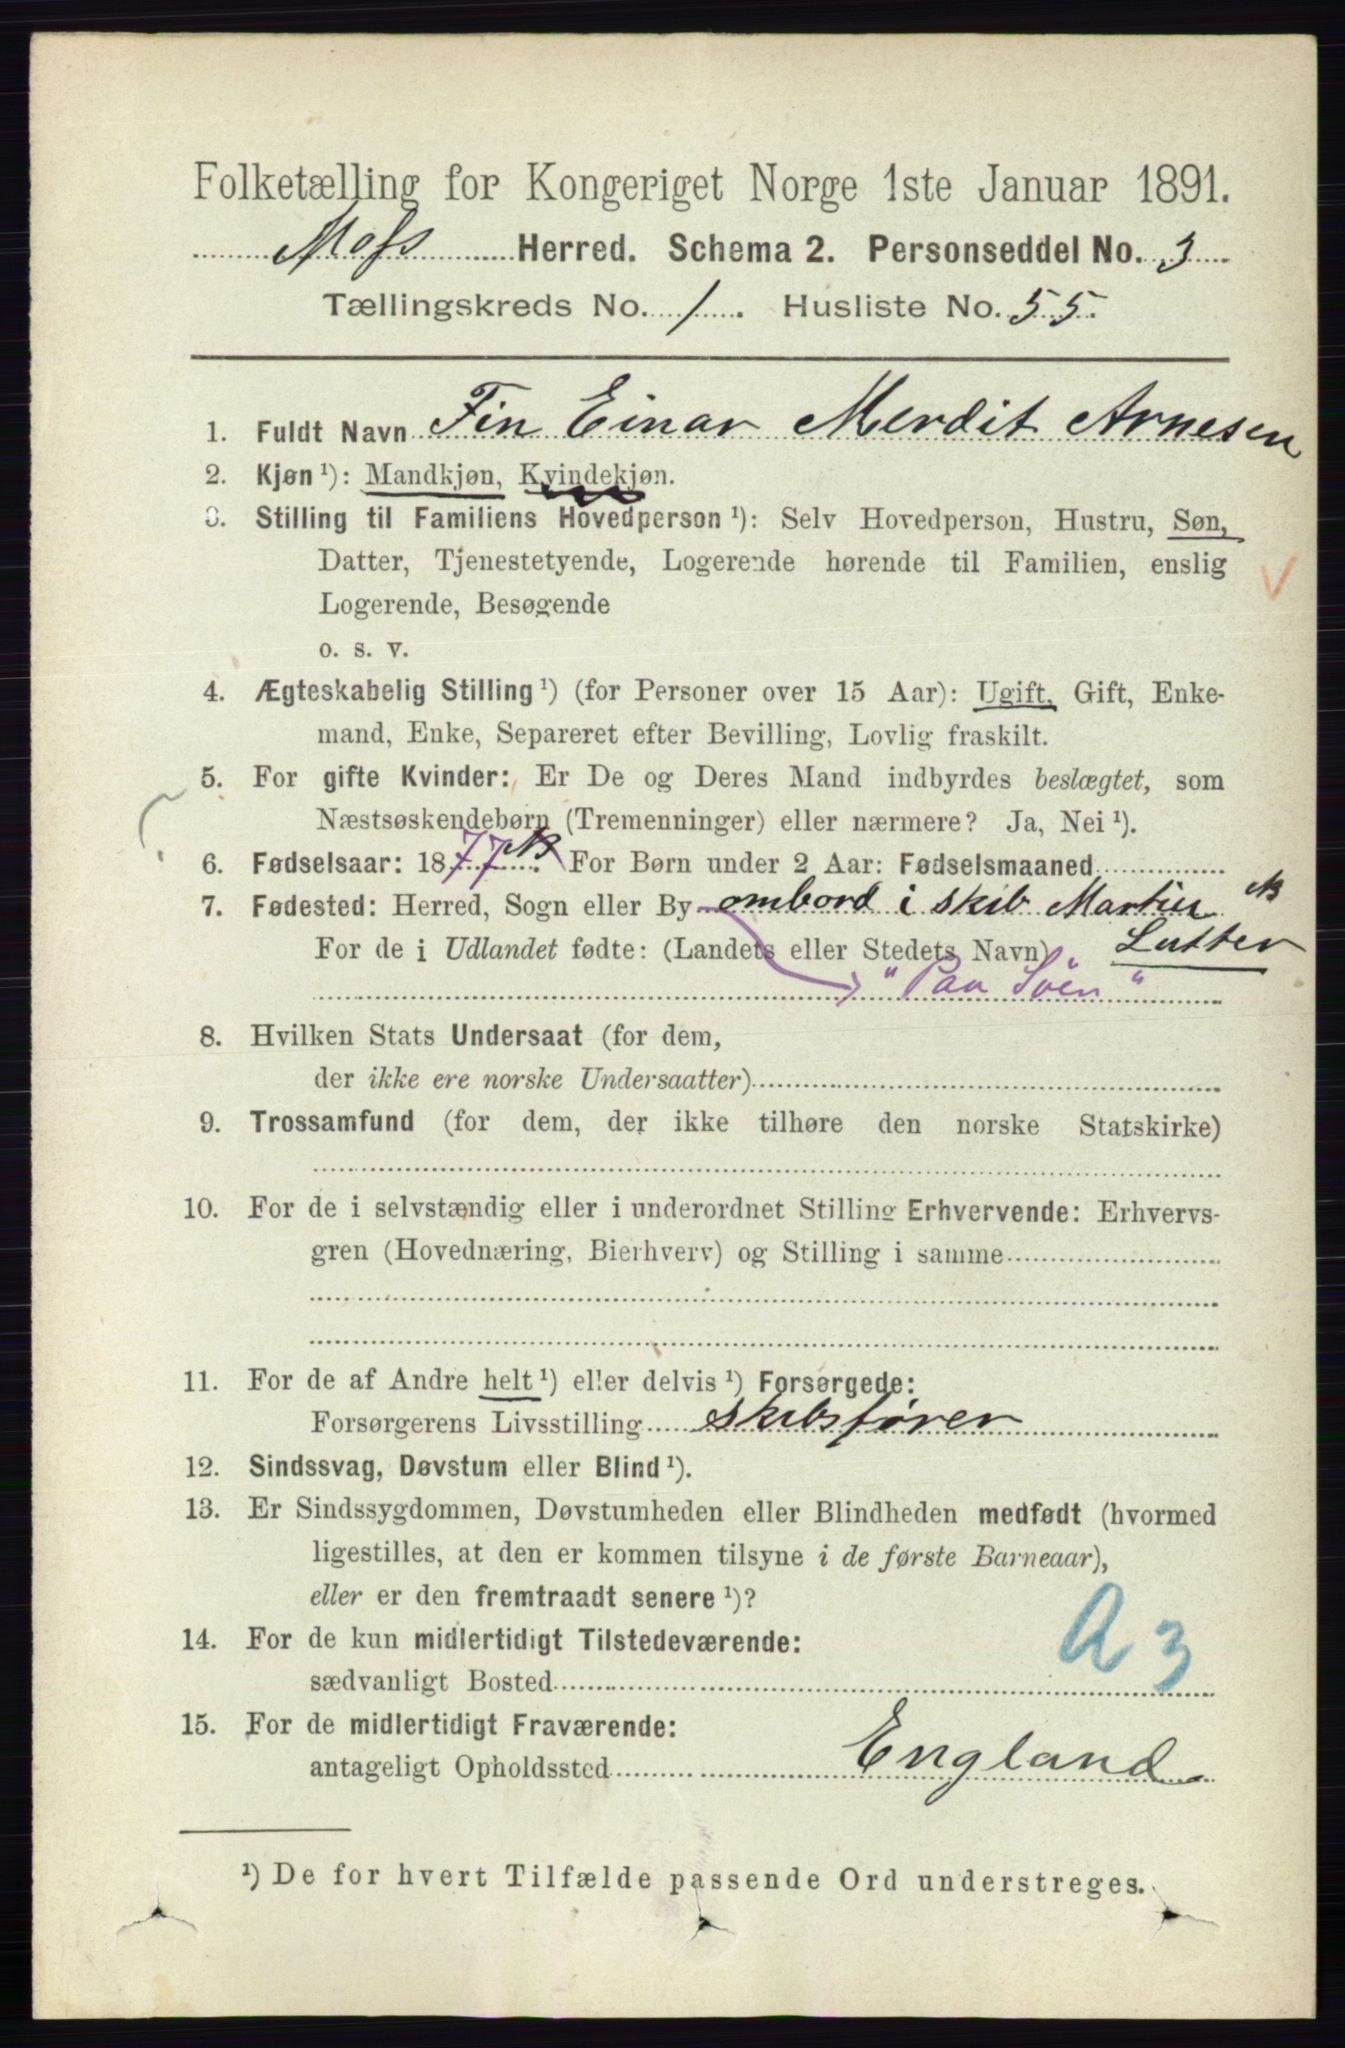 Folketælling for Kongeriget Norge 1ste Januar 1891.
Mofs Herred. Schema 2. Personseddel No. 3
Tællingskreds No. 1. Husliste No. 55.
1. Fuldt Navn Fin Einar Merdit Arnesen
2. Kjøn ¹): Mandkjøn, Kvindekjøn.
3. Stilling til Familiens Hovedperson ¹): Selv Hovedperson, Hustru, Søn,
Datter, Tjenestetyende, Logerende hørende til Familien, enslig
Logerende, Besøgende
o. s. v.
4. Ægteskabelig Stilling ¹) (for Personer over 15 Aar): Ugift, Gift, Enke-
mand, Enke, Separeret efter Bevilling, Lovlig fraskilt.
5. For gifte Kvinder: Er De og Deres Mand indbyrdes beslægtet, som
Næstsøskendebørn (Tremenninger) eller nærmere? Ja, Nei ¹).
6. Fødselsaar: 1877. For Børn under 2 Aar: Fødselsmaaned
7. Fødested: Herred, Sogn eller By ombord i skib Martin
For de i Udlandet fødte: (Landets eller Stedets Navn) Lutter
"Paa Söen"
8. Hvilken Stats Undersaat (for dem,
der ikke ere norske Undersaatter)
9. Trossamfund (for dem, der ikke tilhøre den norske Statskirke)
10. For de i selvstændig eller i underordnet Stilling Erhvervende: Erhvervs-
gren (Hovednæring, Bierhverv) og Stilling i samme
11. For de af Andre helt ¹) eller delvis ¹) Forsørgede:
Forsørgerens Livsstilling skibsfører
12. Sindssvag, Døvstum eller Blind ¹).
13. Er Sindssygdommen, Døvstumheden eller Blindheden medfødt (hvormed
ligestilles, at den er kommen tilsyne i de første Barneaar),
eller er den fremtraadt senere ¹)?
A 3
14. For de kun midlertidigt Tilstedeværende:
sædvanligt Bosted
15. For de midlertidigt Fraværende:
antageligt Opholdssted England
¹) De for hvert Tilfælde passende Ord understreges.